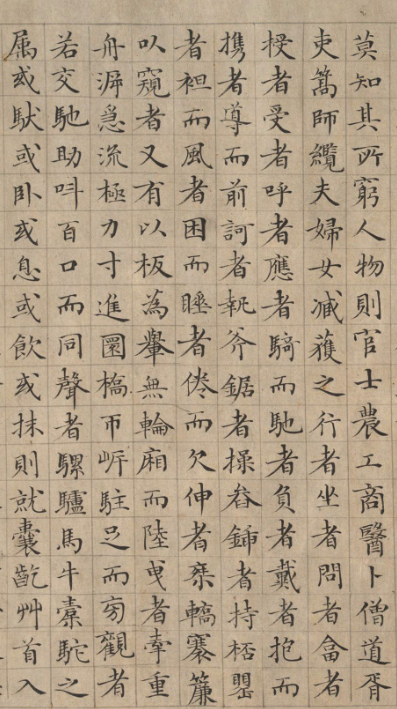 莫知其所窮人物則官士農工商醫卜僧道胥
吏篙師纜夫婦女臧獲之行者坐者問者畣者
授者受者呼者應者騎而馳者負者戴者抱而
携者導而前訶者執斧鋸者操畚鍤者持桮罌
者袒而風者困而睡者倦而欠伸者乘轎褰簾
以窺者又有以板為轝無輪廂而陸曳者牽重
舟泝急流極力寸進圜橋帀岍駐足而旁觀者
若交馳助呌百口而同聲者騾驢馬牛橐駝之
属或馱或卧或息或飲或抹則就囊齕艸首入